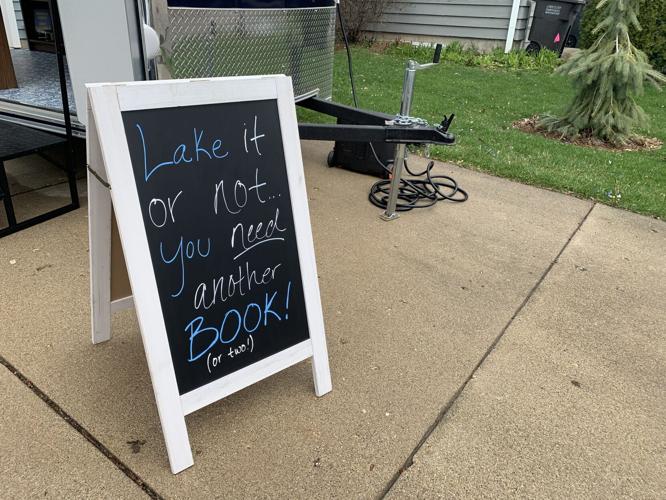 Lake it
or not...
you need
another
BOOK!
(or two!)